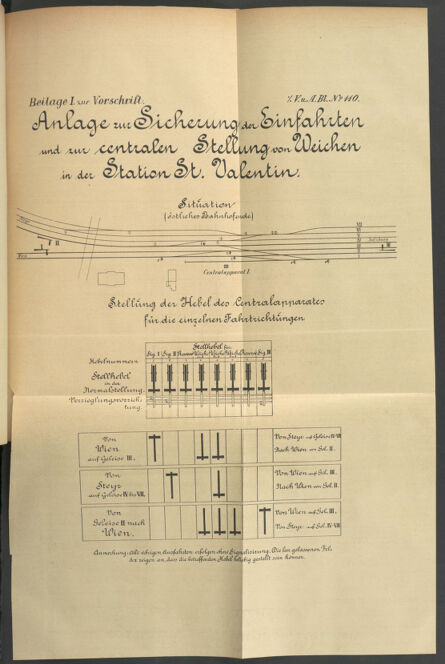 Beilage I zur Vorschrift.
z. V. u. A. Bl. Nr. 110.
Anlage zur Sicherung der Einfahrten
und zur centralen Stellung von Weichen
in der Station St. Valentin.
Situation
(östliches Bahnhofende)
Steyr
Wien
Salzburg
Centralapparat I.
Stellung der Hebel des Centralapparates
für die einzelnen Fahrtrichtungen
Stellhebel für
Sig. I Sig. II
Sig. III
Hebelnummern
Stellhebel
in der
Normalstellung.
Verriegelungsvorrich-
tung.
Von
Wien
auf Geleise III.
Von Steyr auf Geleise IV-VII
Nach Wien von Gel. II.
Von
Steyr
auf Geleise IV bis VII.
Von Wien auf Gel. III.
Nach Wien von Gel. II.
Von
Geleise II nach
Wien.
Von Wien auf Gel. III.
Von Steyr auf Gel. IV-VII
Anmerkung: Alle übrigen Ausfahrten erfolgen ohne Signalisirung. Die leer gelassenen Fel-
der zeigen an, dass die betreffenden Hebel beliebig gestellt sein können.